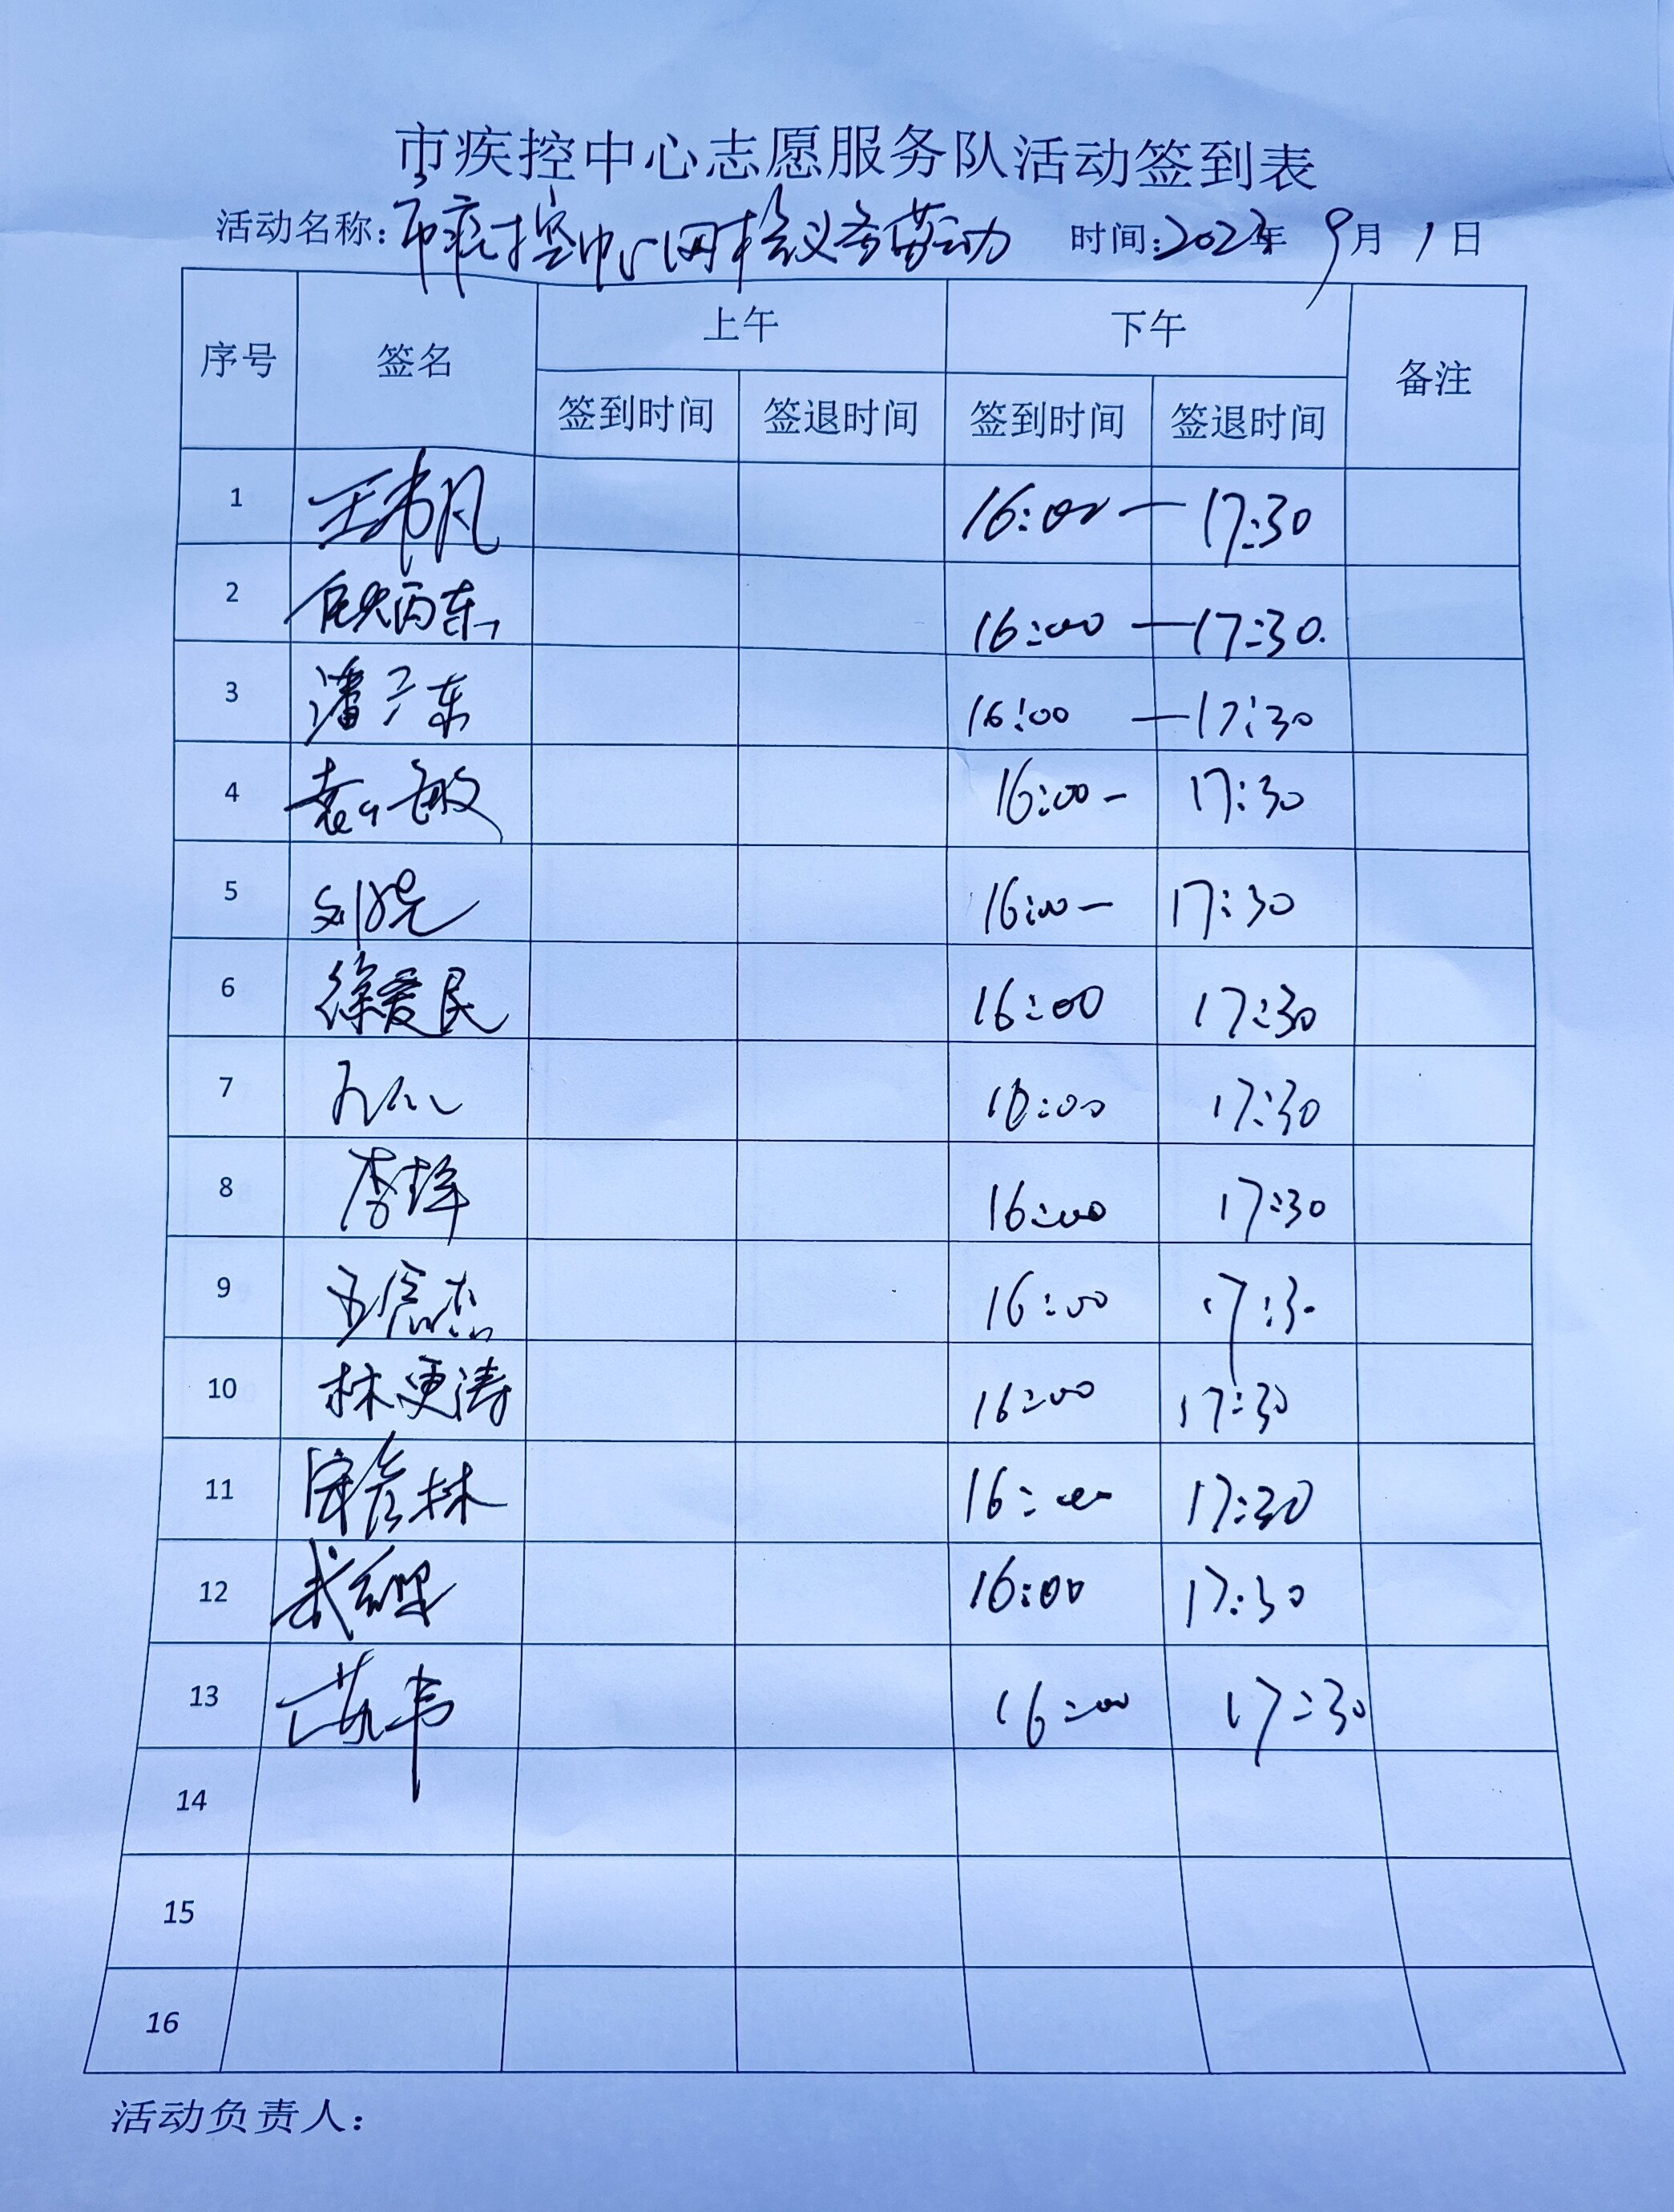 市疾控中心志愿服务队活动签到表
活动名称：市疾控中心网格义务劳动 时间：2023年 9月 1日
序号 签名 上午 下午 备注
签到时间 签退时间 签到时间 签退时间
1 16:00 — 17:30
2 16:00 — 17:30.
3 潘广东 16:00 — 17:30
4 袁敏 16:00 - 17:30
5 刘晓 16:00 - 17:30
6 徐爱民 16:00 17:30
7 16:00 17:30
8 李锋 16:00 17:30
9 16:00 17:30
10 林更涛 16:00 17:30
11 16:00 17:30
12 16:00 17:30
13 16:00 17:30
14
15
16
活动负责人：